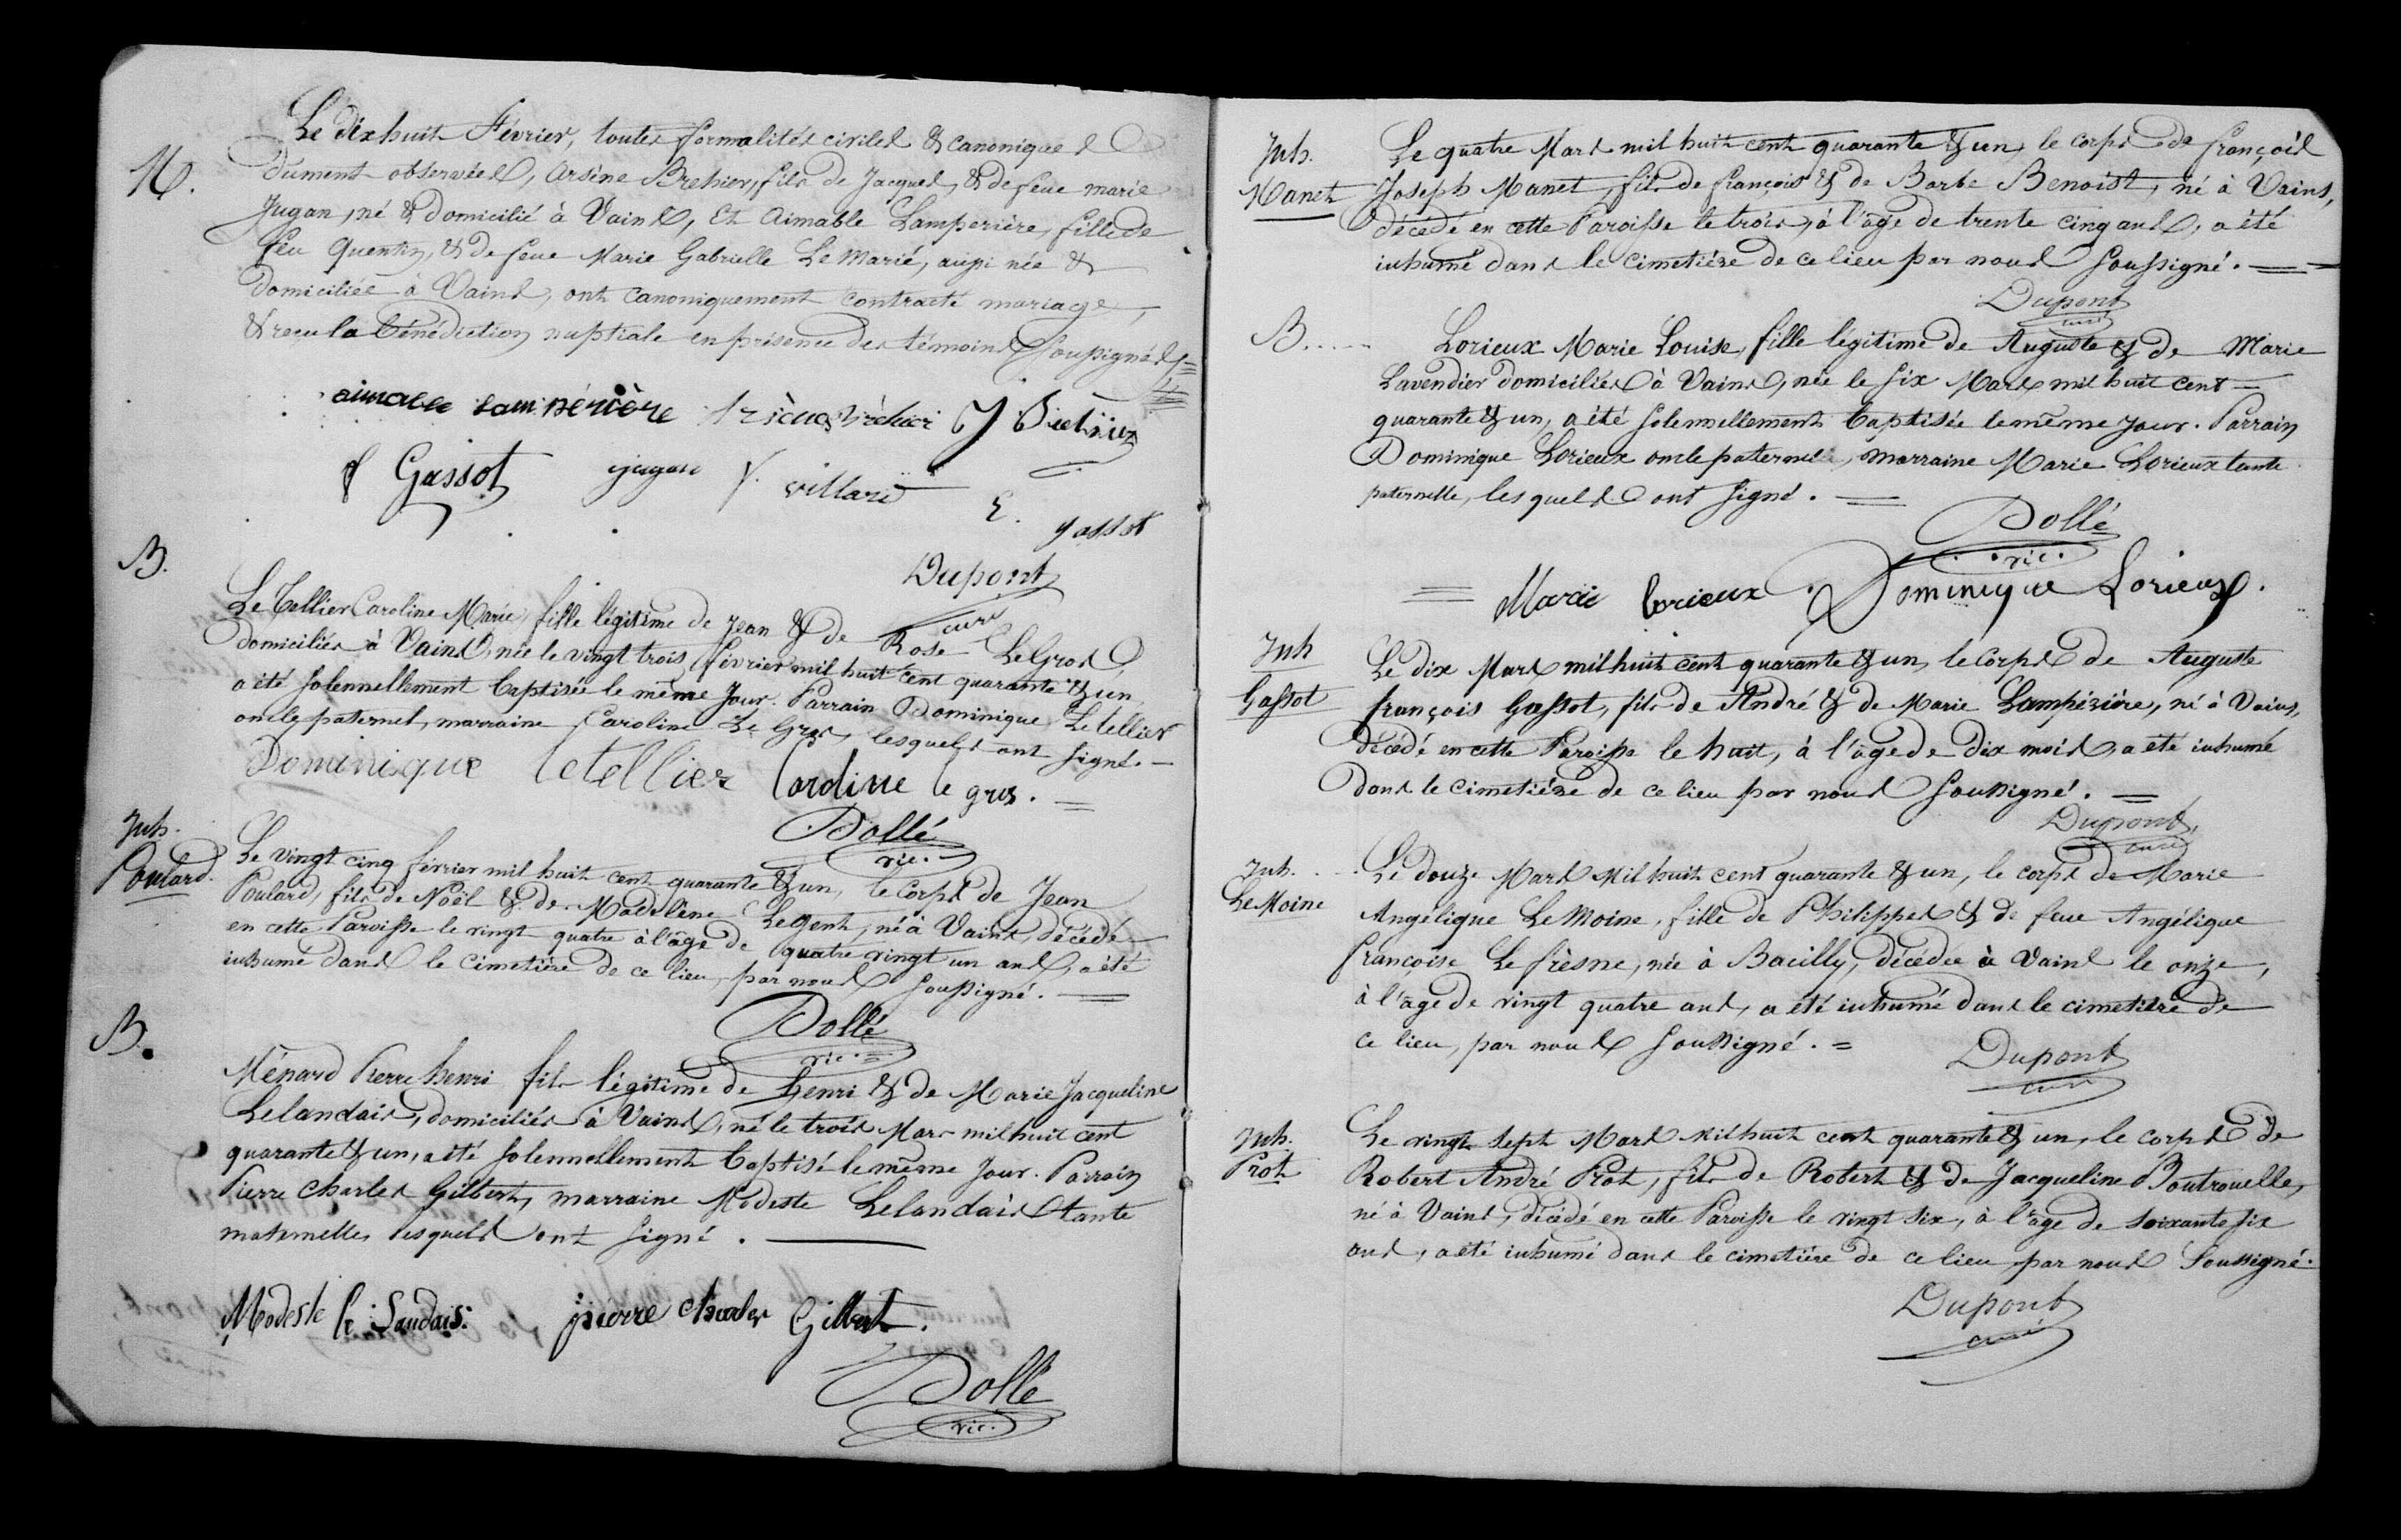 M.
Le dix huit Février, toutes formalités civiles & canoniques
dument observées, Arsène Brehier, fils de Jacques, & de feue marie
Jugan, né & domicilié à Vains, Et Aimable Lamperière, fille de
feu Quentin, & de feue Marie Gabrielle Le Marié, aussi née &
domiciliée à Vains, ont canoniquement contracté mariage,
& reçu la bénédiction nuptiale en présence des témoins soussignés
aimable lampérière J Brehier
f Gassot jugan V. villard E. gassot
Dupont
curé
B.
Le Tellier Caroline Marie, fille légitime de Jean & de Rose LeGros,
domiciliés à Vains, née le vingt trois février mil huit cent quarante & un
a été solennellement baptisée le même jour. Parrain Dominique Letellier
oncle paternel, marraine Caroline Le Gros, lesquels ont signé.
Dominique letellier Cardine le gros.
Dollé
vic.
Inh.
Poulard.
Le vingt cinq février mil huit cent quarante & un, le corps de Jean
Poulard, fils de Noël & de Madelène Legent, né à Vains, décédé
en cette Paroisse le vingt quatre à l'âge de quatre vingt un ans, a été
inhumé dans le cimetière de ce lieu, par nous soussigné.
Dollé
vic.
B.
Ménard Pierre henri fils légitime de henri & de Marie Jacqueline
Lelandais, domiciliés à Vains, né le trois Mars mil huit cent
quarante & un, a été solennellement baptisé le même jour. Parrain
Pierre Charles Gilbert, marraine Modeste Lelandais tante
maternelle, lesquels ont signé.
Modeste le Landais. pierre charles Gilbert.
Dollé
vic.
Inh.
Manet
Le quatre Mars mil huit cent quarante & un, le corps de françois
Joseph Manet, fils de françois & de Barbe Benoist, né à Vains,
décédé en cette Paroisse le trois, à l'âge de trente cinq ans, a été
inhumé dans le cimetière de ce lieu par nous soussigné.
Dupont
curé
B.....
Lorieux Marie Louise, fille légitime de Auguste & de Marie
Lavendier domiciliés à Vains, née le six Mars mil huit cent
quarante & un, a été solennellement baptisée le même jour. Parrain
Dominique Lorieux oncle paternel, marraine Marie Lorieux tante
paternelle, lesquels ont signé.
Dollé
vic.
Marie lorieux Dominique Lorieux.
Inh
Gassot
Le dix Mars mil huit cent quarante & un, le corps de Auguste
françois Gassot, fils de André & de Marie Lampérière, né à Vains,
décédé en cette Paroisse le huit, à l'âge de dix mois, a été inhumé
dans le cimetière de ce lieu par nous soussigné.
Dupont,
curé
Inh...
Le Moine
Le douze Mars Mil huit cent quarante & un, le corps de Marie
Angélique Le Moine, fille de Philippes & de feue Angélique
françoise Le frèsne, née à Bacilly, décédée à Vains le onze,
à l'âge de vingt quatre ans, a été inhumé dans le cimetière de
ce lieu, par nous soussigné.
Dupont
curé
Inh.
Prot
Le vingt sept Mars Mil huit cent quarante & un, le corps de
Robert André Prot, fils de Robert & de Jacqueline Boutrouelle,
né à Vains, décédé en cette Paroisse le vingt six, à l'âge de soixante six
ans, a été inhumé dans le cimetière de ce lieu par nous soussigné.
Dupont
curé